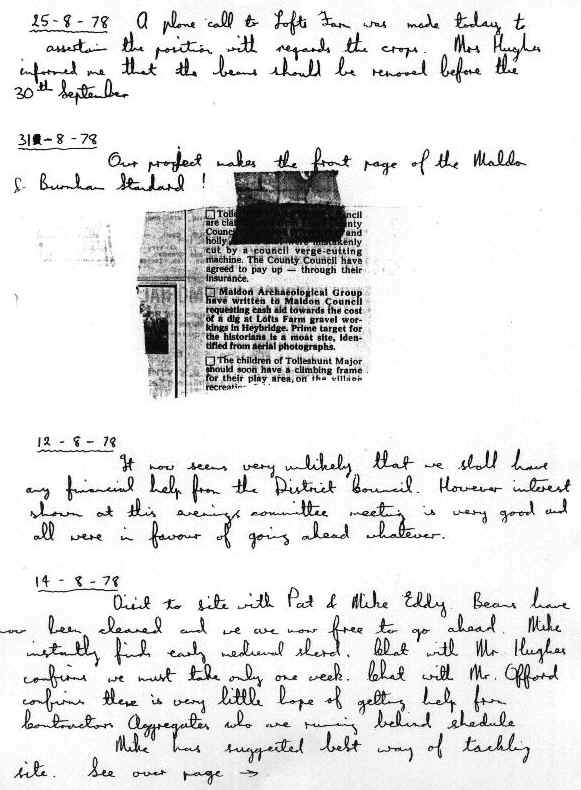 25-8-78 A phone call to Lofts Farm was made today to
assertain the position with regards the crops. Mrs Hughes
informed me that the beans should be removed before the
30th September
31-8-78
Our project makes the front page of the Maldon
& Burnham Standard !
are
holly
cut by a council verge-cutting
machine. The County Council have
agreed to pay up — through their
insurance.
Maldon Archaeological Group
have written to Maldon Council
requesting cash aid towards the cost
of a dig at Lofts Farm gravel wor-
kings in Heybridge. Prime target for
the historians is a moat site, iden-
tified from aerial photographs.
The children of Tolleshunt Major
should soon have a climbing frame
for their play area, on the village
12-8-78
It now seems very unlikely that we shall have
any financial help from the District Council. However interest
shown at this evenings committee meeting is very good and
all were in favour of going ahead whatever.
14-8-78
Visit to site with Pat & Mike Eddy. Beans have
now been cleared and we are now free to go ahead. Mike
instantly finds early medieval sherd. Chat with Mr. Hughes
confirms we must take only one week. Chat with Mr. Offord
confirms there is very little hope of getting help from
Contractors Aggregates who are running behind shedule
Mike has suggested best way of tackling
site. See over page →